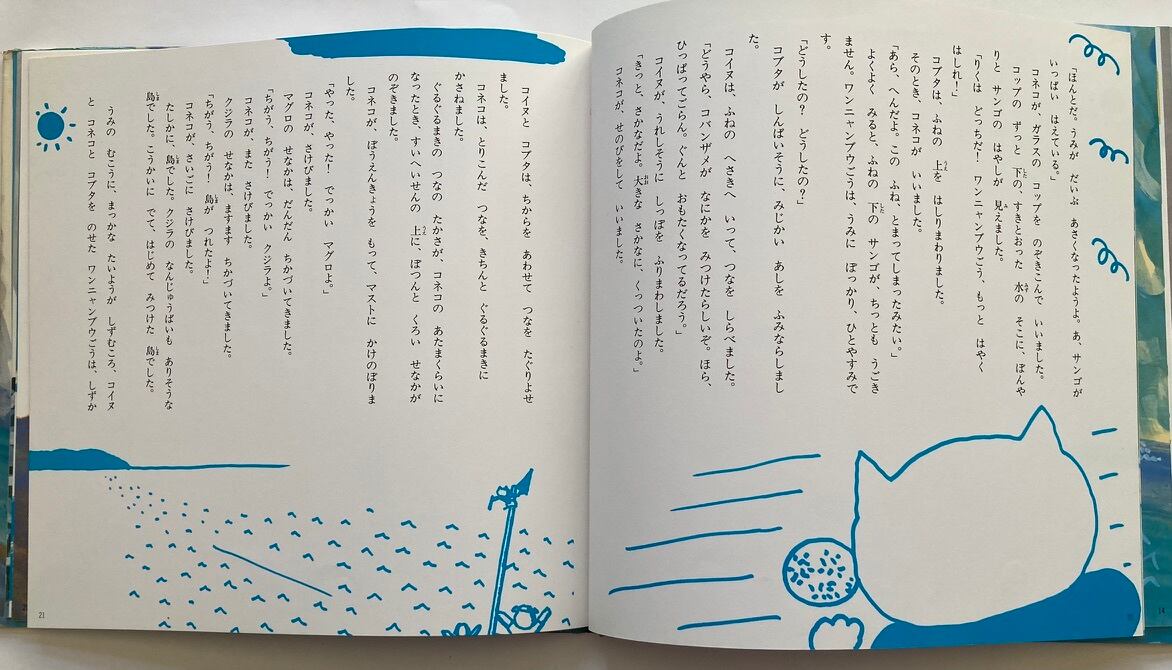 「ほんとだ。うみが だいぶ あさくなったようよ。あ、サンゴが
いっぱい はえている。」
コネコが、ガラスの コップを のぞきこんで いいました。
コップの ずっと 下の、すきとおった 水の そこに、ぼんや
りと サンゴの はやしが 見えました。
「りくは どっちだ！ ワンニャンブウごう、もっと はやく
はしれ！」
コブタは、ふねの 上を はしりまわりました。
そのとき、コネコが いいました。
「あら、へんだよ。この ふね、とまってしまったみたい。」
よくよく みると、ふねの 下の サンゴが、ちっとも うごき
ません。ワンニャンブウごうは、うみに ぽっかり、ひとやすみで
す。
「どうしたの？ どうしたの？」
コブタが しんぱいそうに、みじかい あしを ふみならしまし
た。
コイヌは、ふねの へさきへ いって、つなを しらべました。
「どうやら、コバンザメが なにかを みつけたらしいぞ。ほら、
ひっぱってごらん。ぐんと おもたくなってるだろう。」
コイヌが、うれしそうに しっぽを ふりまわしました。
「きっと、さかなだよ。大きな さかなに、くっついたのよ。」
コネコが、せのびをして いいました。
コイヌと コブタは、ちからを あわせて つなを たぐりよせ
ました。
コネコは、とりこんだ つなを、きちんと ぐるぐるまきに
かさねました。
ぐるぐるまきの つなの たかさが、コネコの あたまくらいに
なったとき、すいへいせんの 上に、ぽつんと くろい せなかが
のぞきました。
コネコが、ぼうえんきょうを もって、マストに かけのぼりま
した。
「やった、やった！ でっかい マグロよ。」
コネコが、さけびました。
マグロの せなかは、だんだん ちかづいてきました。
「ちがう、ちがう！ でっかい クジラよ。」
コネコが また さけびました。
クジラの せなかは、ますます ちかづいてきました。
「ちがう、ちがう！ 島が つれたよ！」
コネコが、さいごに さけびました。
たしかに、島でした。クジラの なんじゅうばいも ありそうな
島でした。こうかいに でて、はじめて みつけた 島でした。
うみの むこうに、まっかな たいようが しずむころ、コイヌ
と コネコと コブタを のせた ワンニャンブウごうは、しずか
21